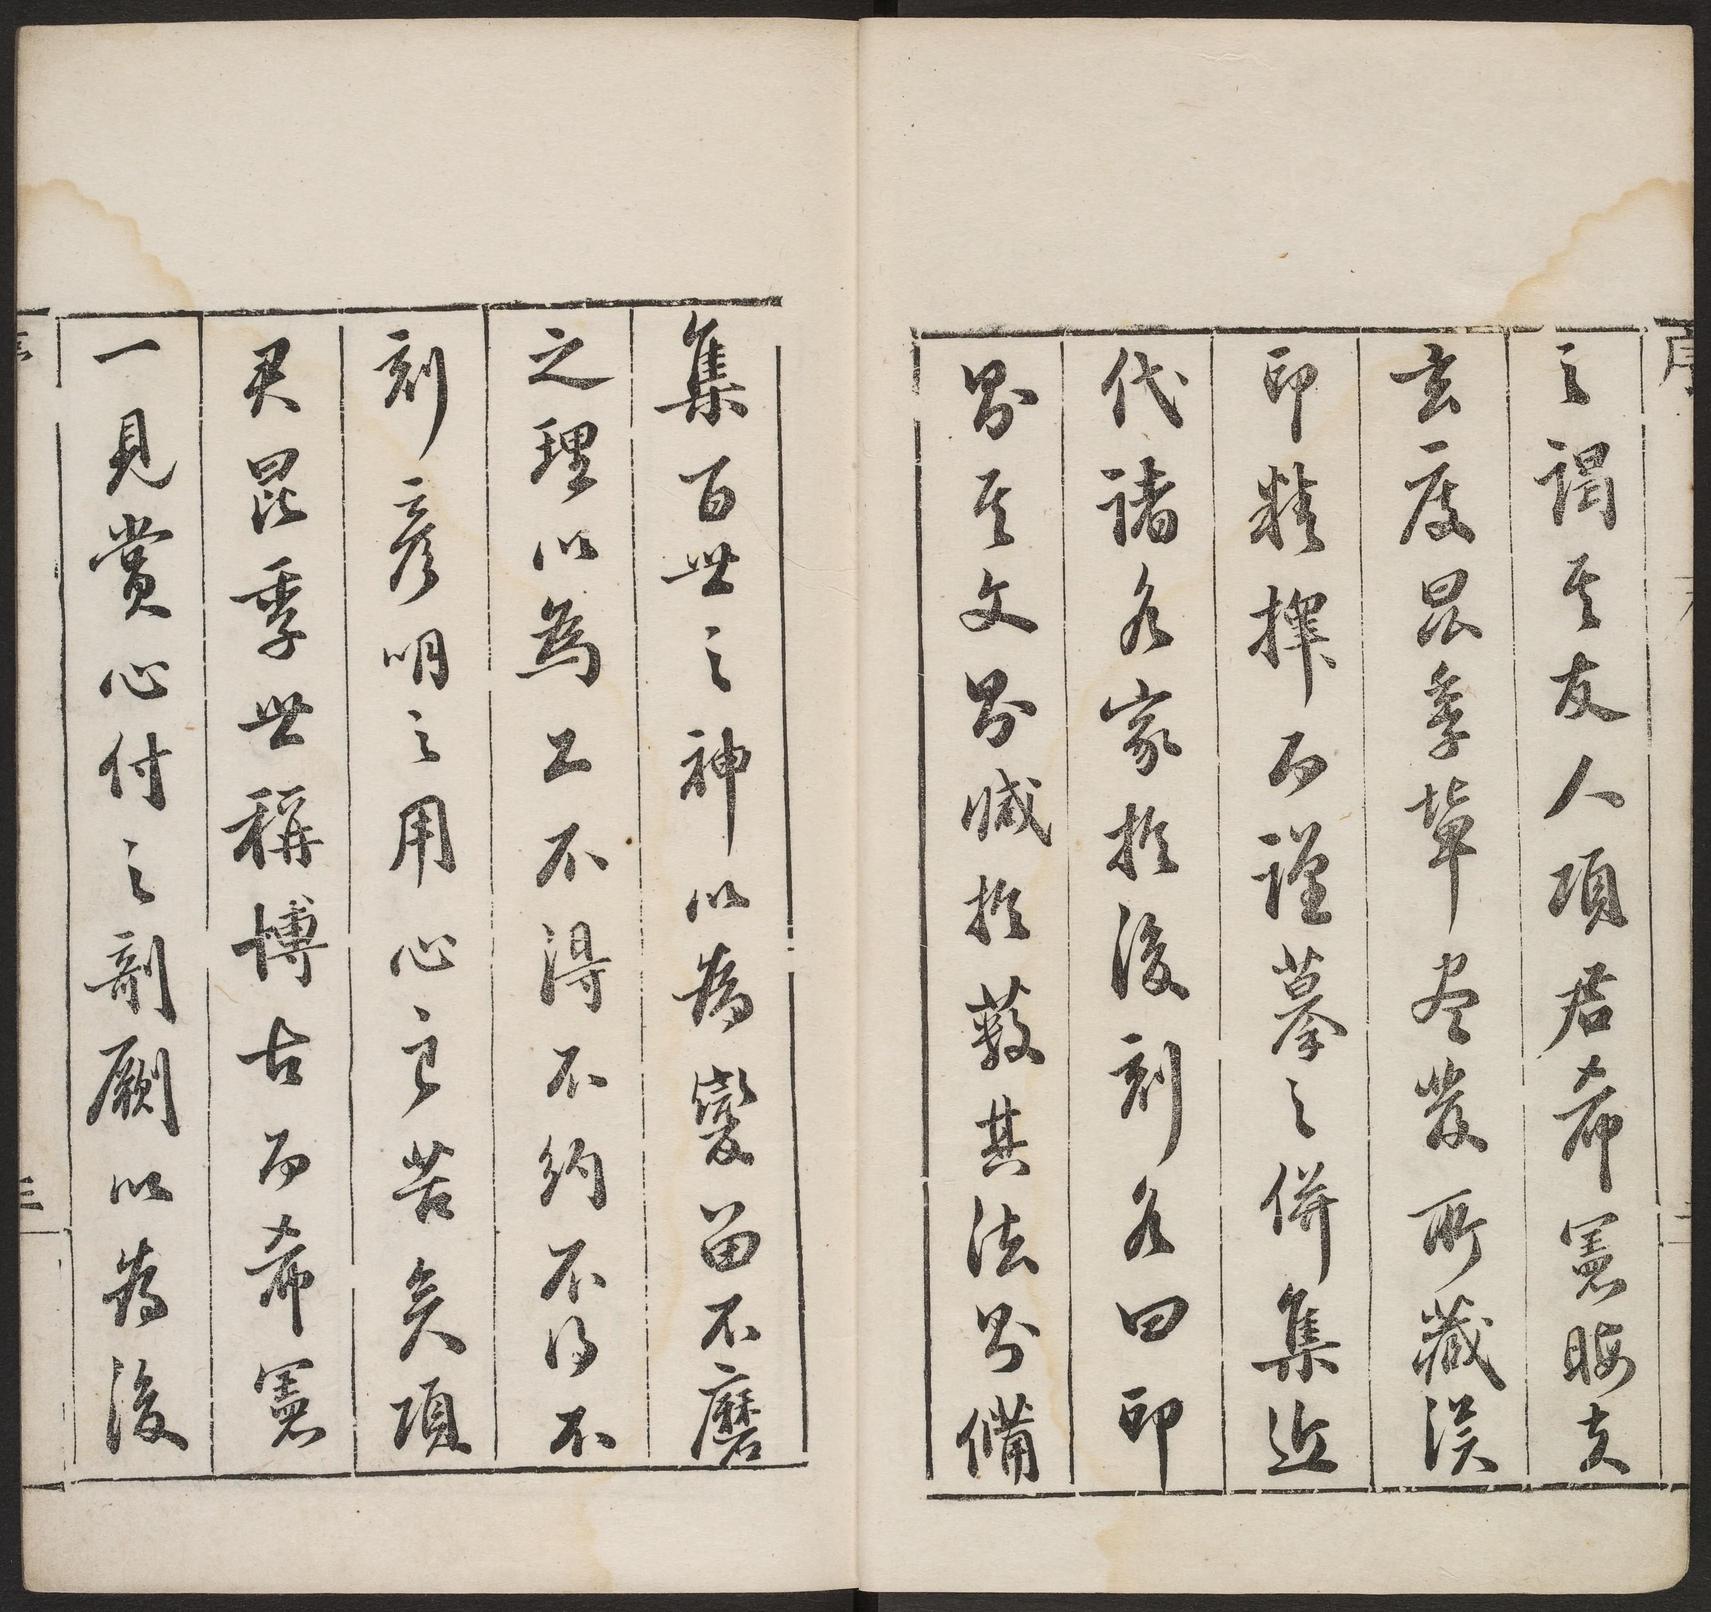 序
二
之謂其友人項君希憲晦夫
玄度昆季輩盡發所藏漢
印精擇而謹摹之併集近
代諸名家於後刻名曰印
則其文則臧於藪其法則備
集百世之神以為變留不磨
之理以為工不得不約不得不
刻彥明之用心良苦矣項
君昆季世稱博古而希憲
一見賞心付之剞劂以為後
三